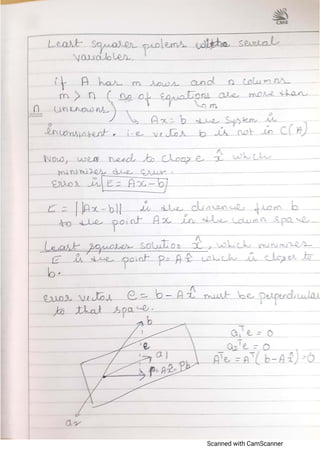 Least squares problems with several
variables.
if A has m rows and n columns
m > n ( no of equations are more than
n unknowns) → m
Ax = b the system is
inconsistent. i.e vector b is not in C(A)
Now, we need to choose x̂ which
minimizes the error.
Error is E = Ax - b
E = ||Ax - b|| is the distance from b
to the point Ax in the column space
Least squares solution x̂, which minimizes
E is the point p = Ax̂ which is closer to
b.
Error vector e = b - Ax̂ must be perpendicular
to that space.
b
e
a1
p = Ax̂ = Pb
a2
a1ᵀe = 0
a2ᵀe = 0
Aᵀe = Aᵀ(b - Ax̂) = 0
Scanned with CamScanner